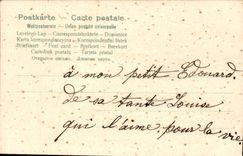 Postkarte - Carte postale
Weltpostverein - Union postale universelle
Levelező-Lap - Correspondenzkarte - Dopisnice
Karta korespondencyjna - Korespondenční lístek
Briefkaart - Post card - Brefkort - Brevkort
Cartolina postale - Tarjeta postal
à mon petit Edouard.
de sa tante Louise
qui l'aime pour la vie